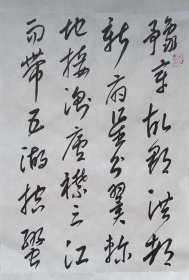 豫章故郡洪都
新府星分翼軫
地接衡廬襟三江
而帶五湖控蠻